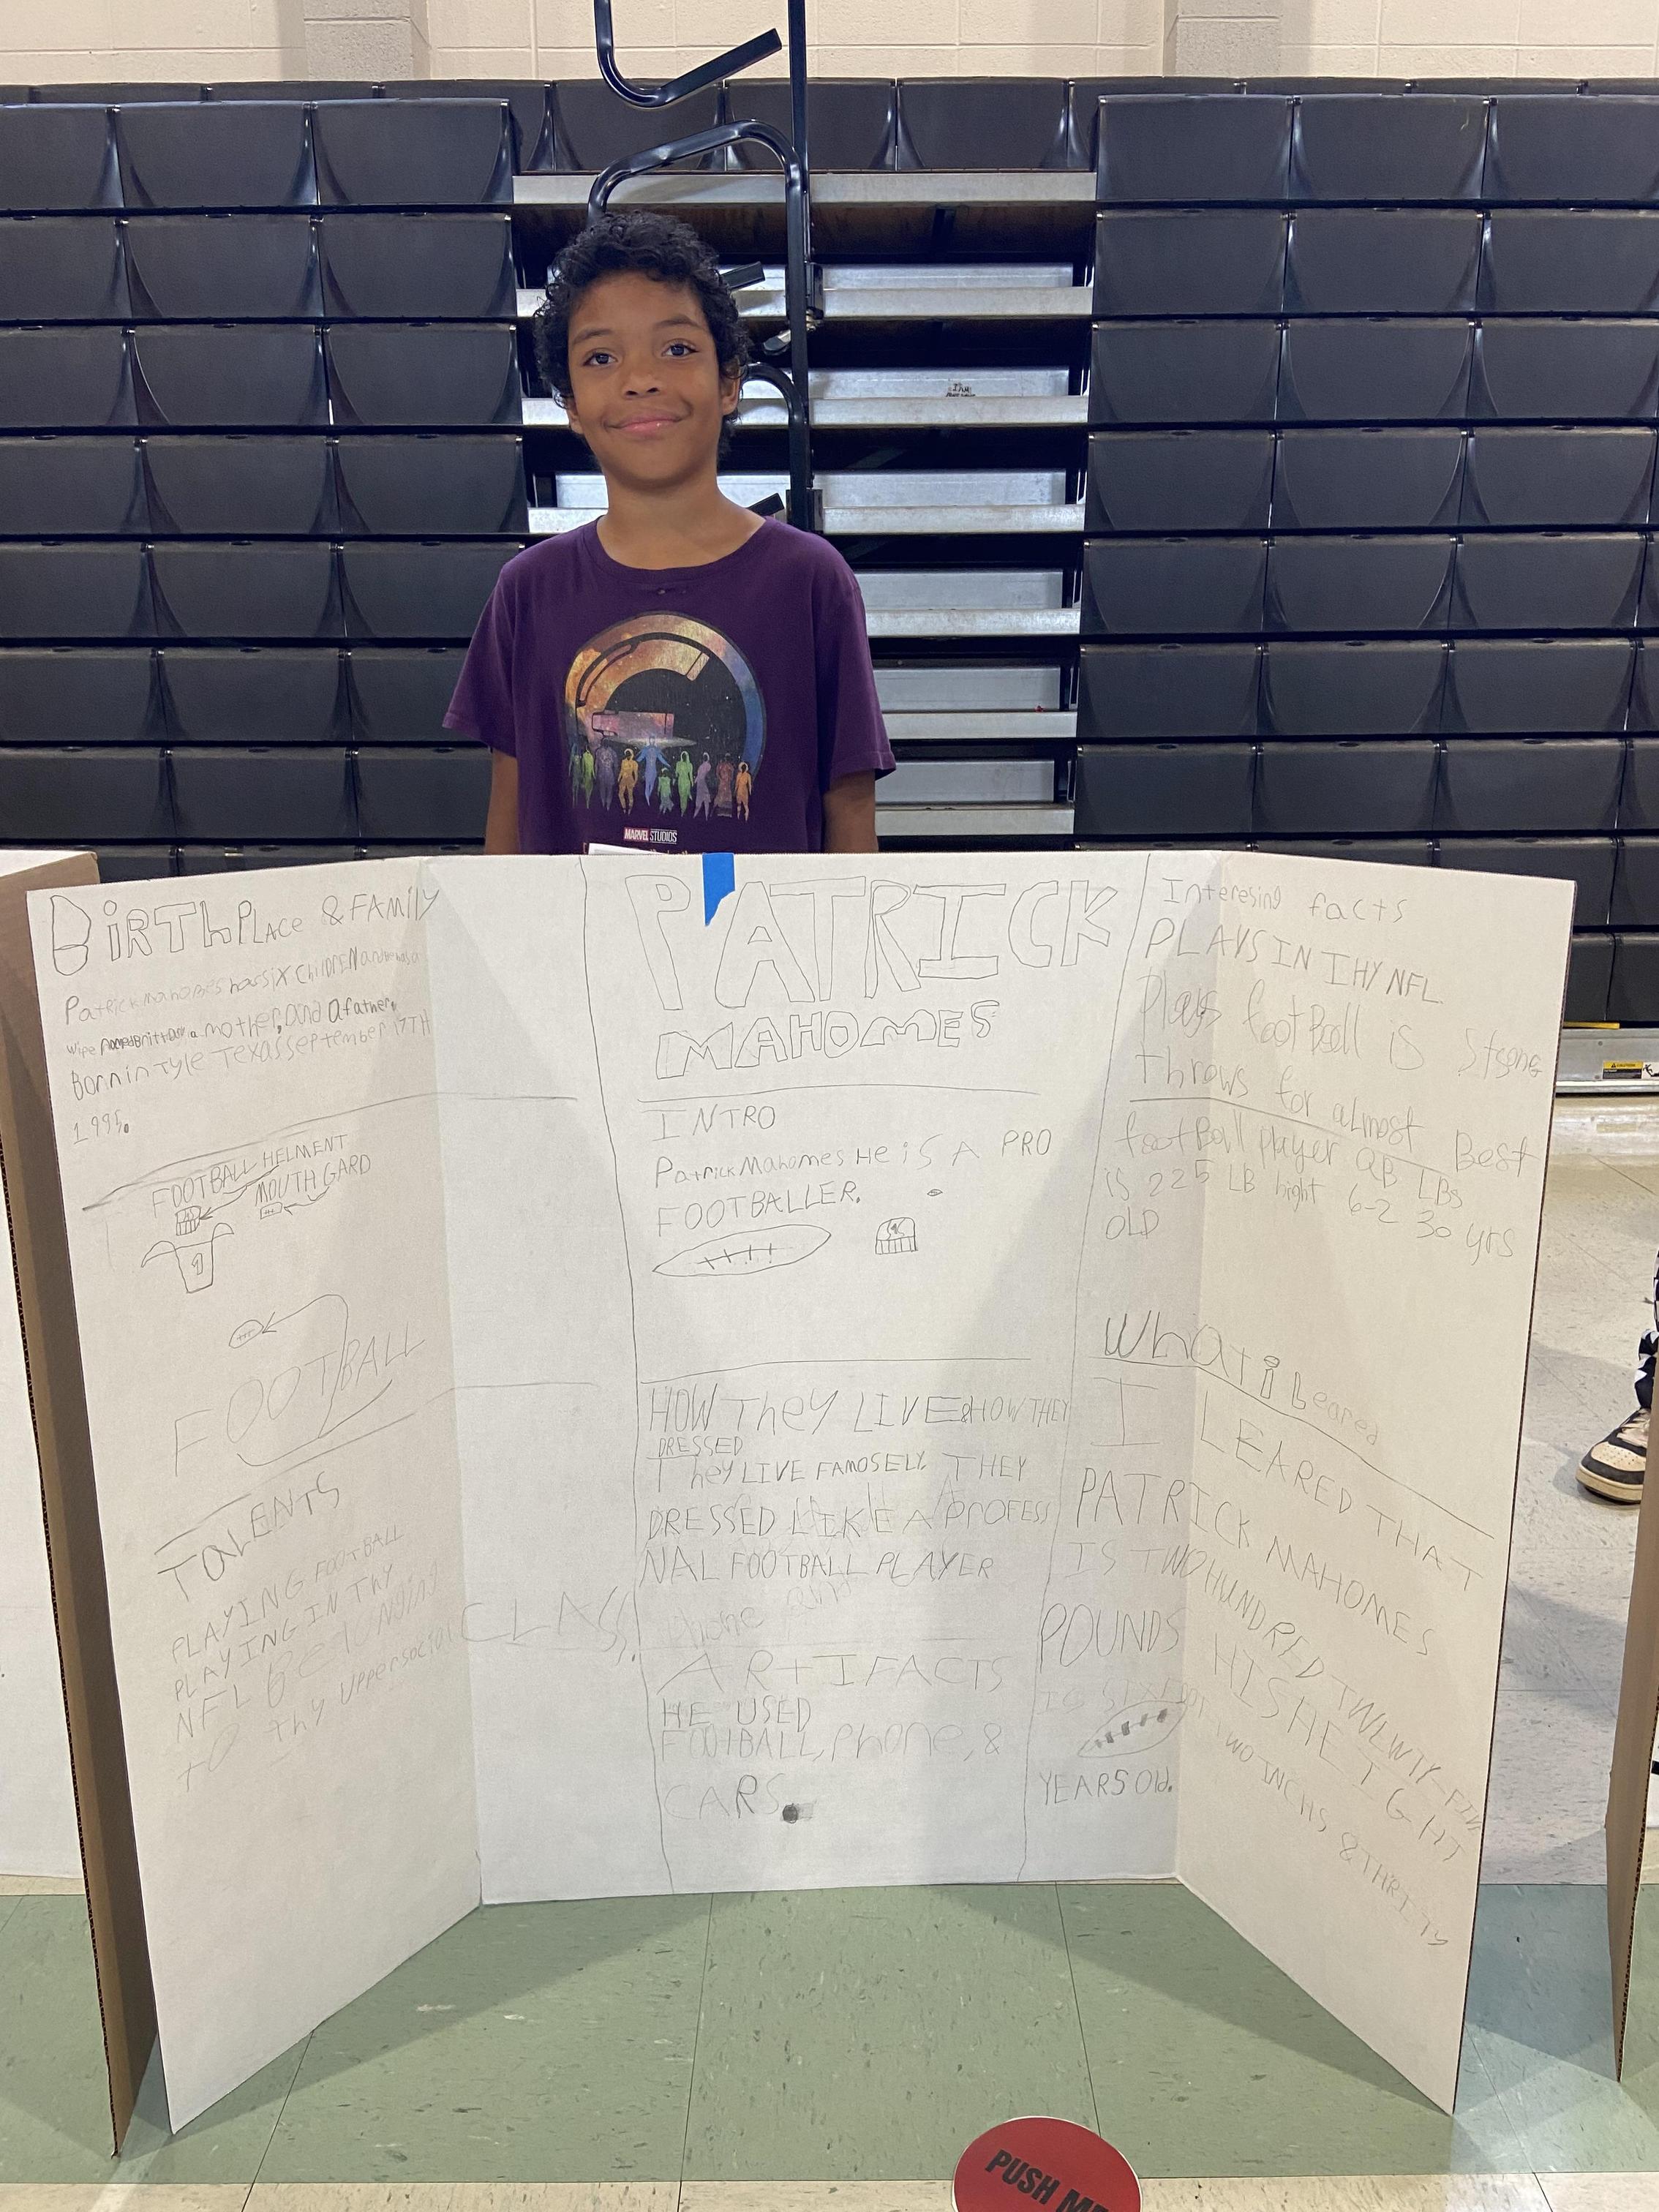 MARVEL STUDIOS
BiRThPLAce & FAMilY
PatRickmahomes has six ChilDREN and
wife a mother, and a father.
Bornin Tyle Texas september 17TH
1995.
FOOTBALL HELMENT
MOUTH GARD
1
FOOTBALL
TALENTS
PLAYING FOOTBALL
PLAYING IN THY
NFL BElonging
to thy uppersocial CLASS.
PATRICK
MAHOMES
INTRO
PatrickMahomes He iS A PRO
FOOTBALLER.
HOW TheY LIVE & HOW THEY
DRESSED
They LIVE FAMOSELY. THEY
DRESSED LIKE A PROFESS
NAL FOOTBALL PLAYER
phone
ARTIFACTS
HE USED
FOOTBALL, phone, &
CARS.
Interesing facts
PLAYS IN THY NFL
Plays footBall is strong
Throws for almost Best
footBall player QB LBs
is 225 LB hight 6-2 30 yrs
OLD
WhAT i Leared
I LEARED THAT
PATRICK MAHOMES
IS TWO HUNDRED TWLWTY-FIV
POUNDS HIS HEIGHT
IS SIX FOOT TWO INCHS & THRITY
YEARS Old.
PUSH ME
CAUTION